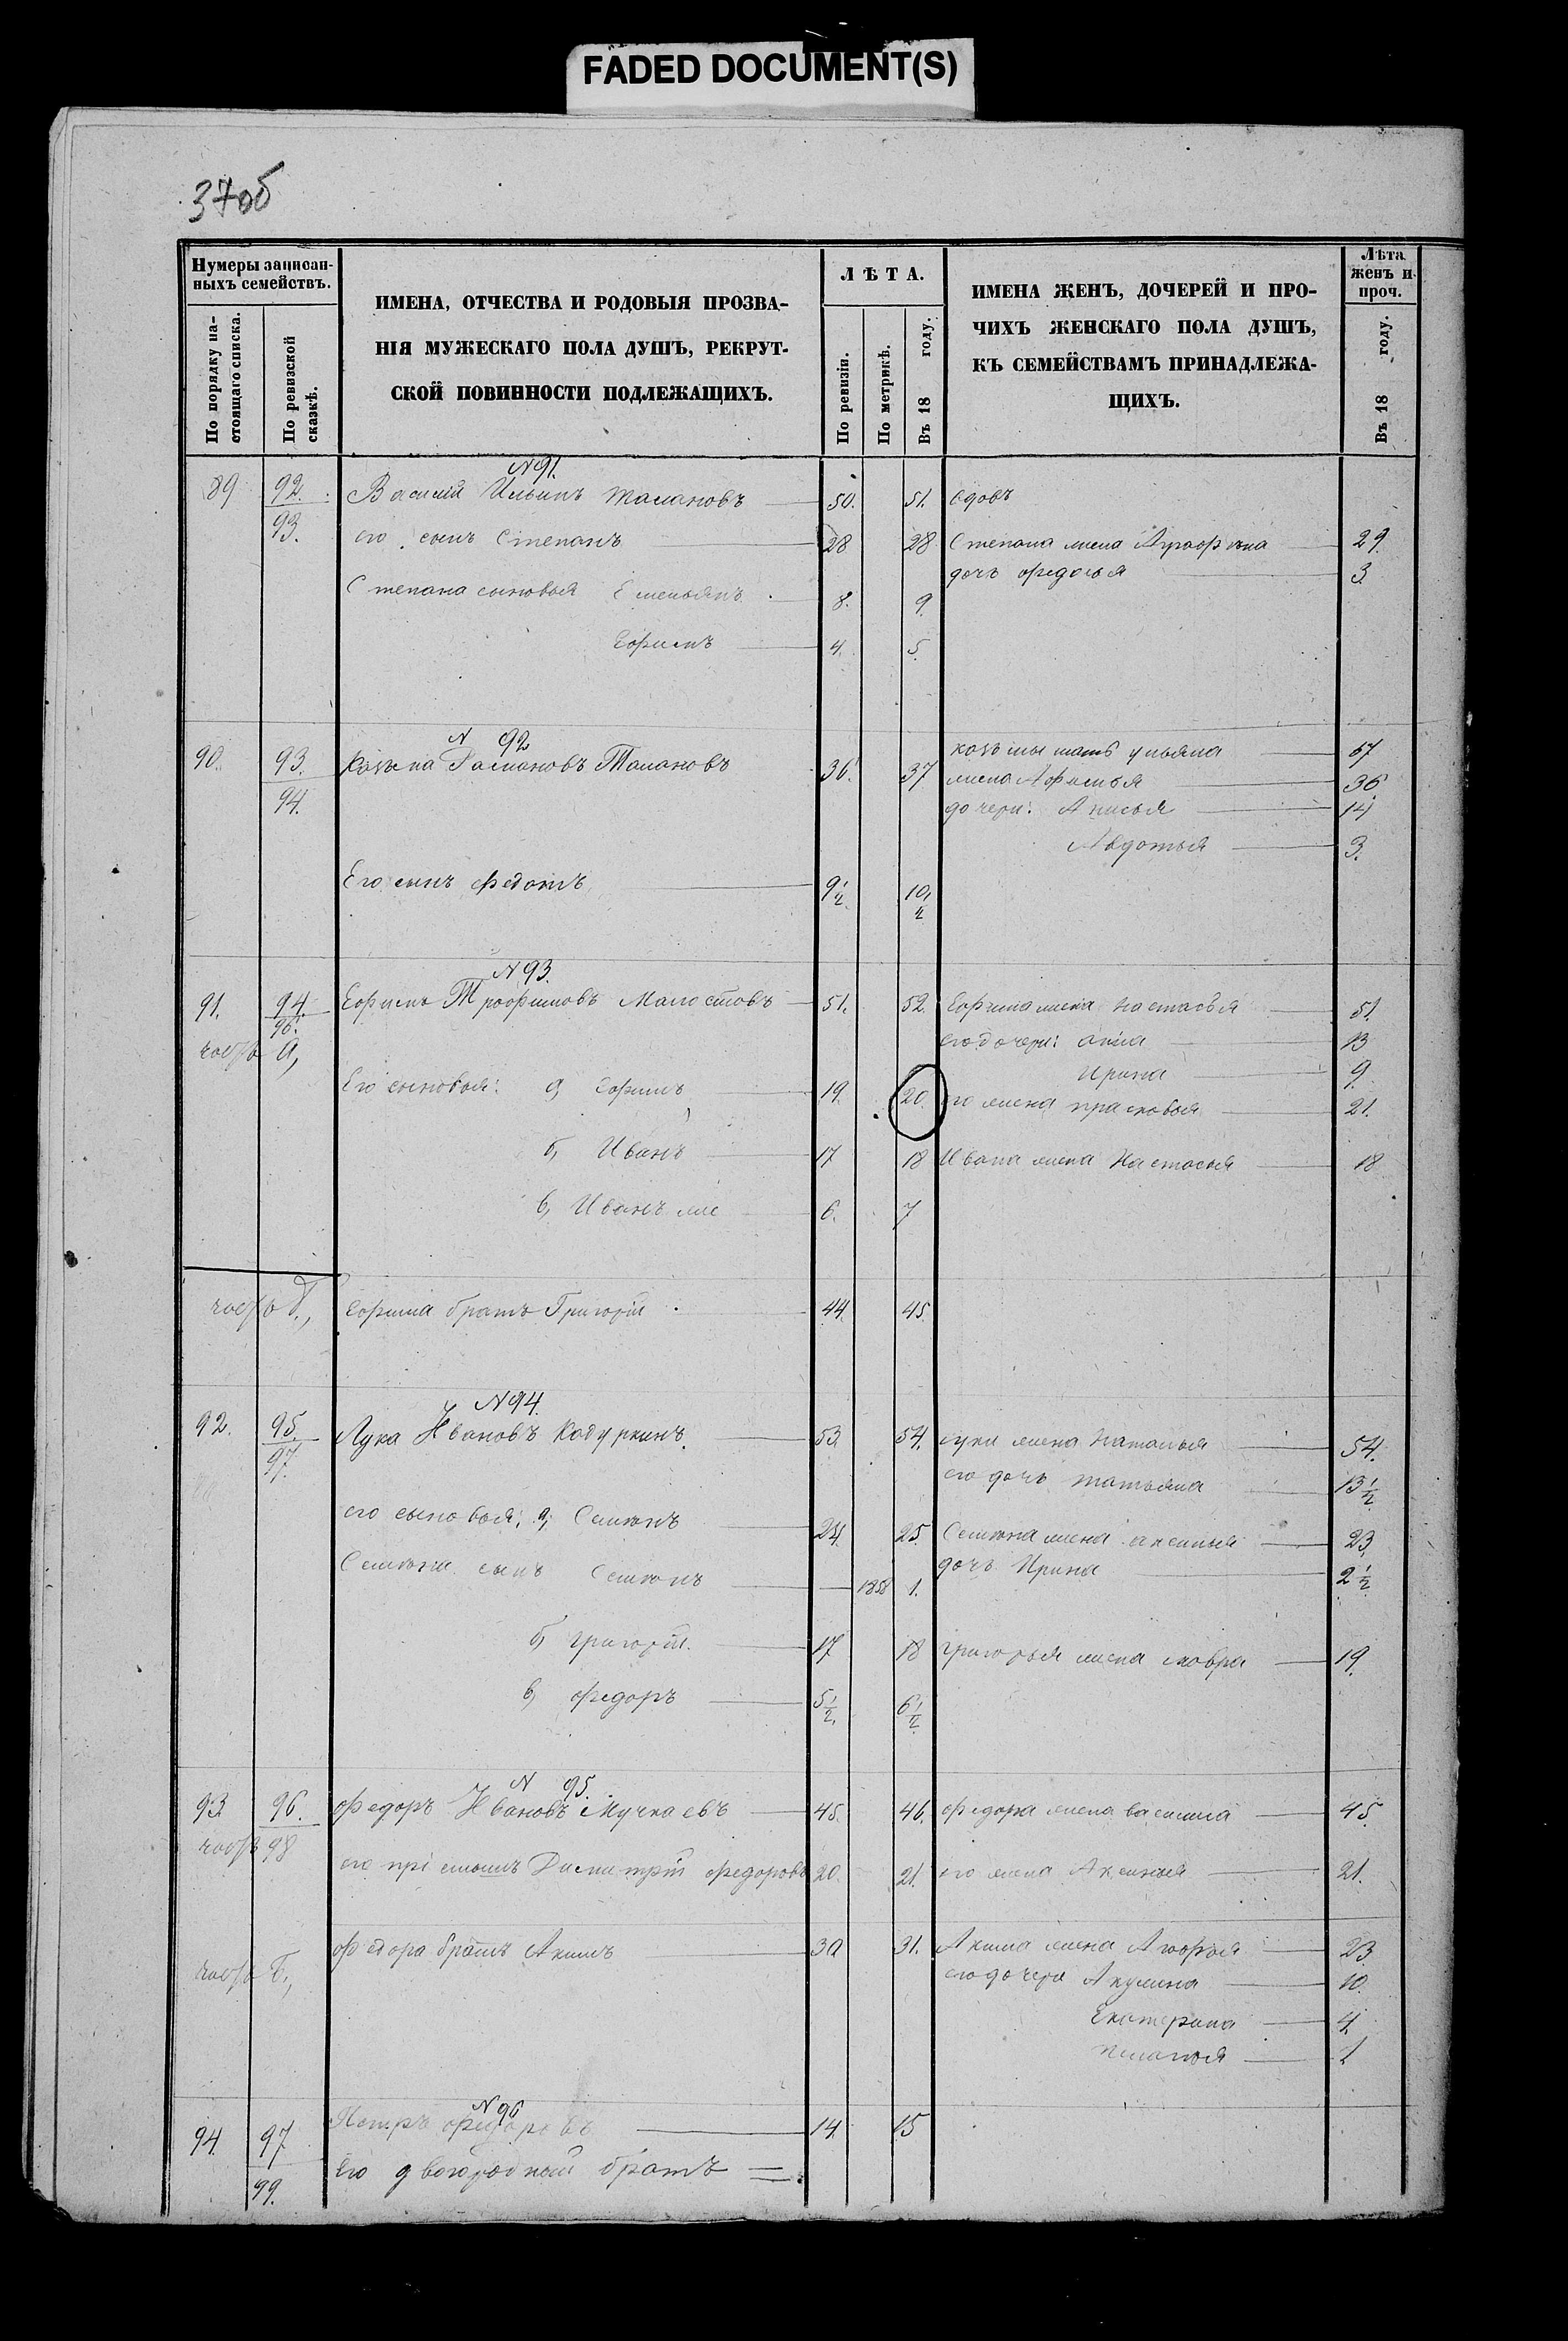 FADED DOCUMENT(S)
37об
Нумеры записан-
ныхъ семействъ.
По порядку на-
стоящаго списка.
По ревизской
сказкѣ.
ИМЕНА, ОТЧЕСТВА И РОДОВЫЯ ПРОЗВА-
НІЯ МУЖЕСКАГО ПОЛА ДУШЪ, РЕКРУТ-
СКОЙ ПОВИННОСТИ ПОДЛЕЖАЩИХЪ.
ЛѢТА.
По ревизіи.
По метрикѣ.
Въ 18 году.
ИМЕНА ЖЕНЪ, ДОЧЕРЕЙ И ПРО-
ЧИХЪ ЖЕНСКАГО ПОЛА ДУШЪ,
КЪ СЕМЕЙСТВАМЪ ПРИНАДЛЕЖА-
ЩИХЪ.
Лѣта
женъ и
проч.
Въ 18 году.
N 91.
89 92. Василій Ильинъ Талановъ 50. 51. вдовъ
93. его сынъ Степанъ 28 28 Степана жена 29.
дочь федосья 3.
Степана сыновья Емельянъ 8. 9.
Ефимъ 4. 5.
N 92
90. 93. Козьма Романовъ Талановъ 36. 37 козьмы мать ульяна 67
94. жена Афимья 36
дочери: Анисья 14
Авдотья 3.
Его сынъ федотъ 9½ 10½
N 93.
91. 94. Ефимъ Трофимовъ Малостовъ 51. 52. Ефима жена настасья 51.
96. его дочери: анна 13
часть а,
Ирина 9.
Его сыновья: а, Ефимъ 19. 20. его жена прасковья 21.
б, Иванъ 17 18 Ивана жена Настасья 18
в, Иванъ же 6. 7
часть б., Ефима братъ Григорій 44. 45.
N 94.
92. 95. Лука Ивановъ Кадуркинъ. 53. 54. луки жена Наталья 54.
97. его дочь татьяна 13½
его сыновья: а, Семионъ 24. 25. Семиона жена аксинья 23.
дочь Ирина 2½
Семиона сынъ Семионъ 1858 1.
б, григорій. 17 18 григорья жена мавра 19.
в, федоръ 5½ 6½
N 95.
93. 96. федоръ Ивановъ Мучкаевъ 45. 46. федора жена василиса 45.
часть 98
его пріемышъ Димитрій федоровъ 20. 21. его жена Аксинья 21.
часть б., федора братъ Акимъ 30 31. Акима жена 23.
его дочери Акулина 10.
Екатерина 4.
пелагея 1
N 96
94. 97 Петръ федоровъ 14. 15
99. Его двоюродный братъ